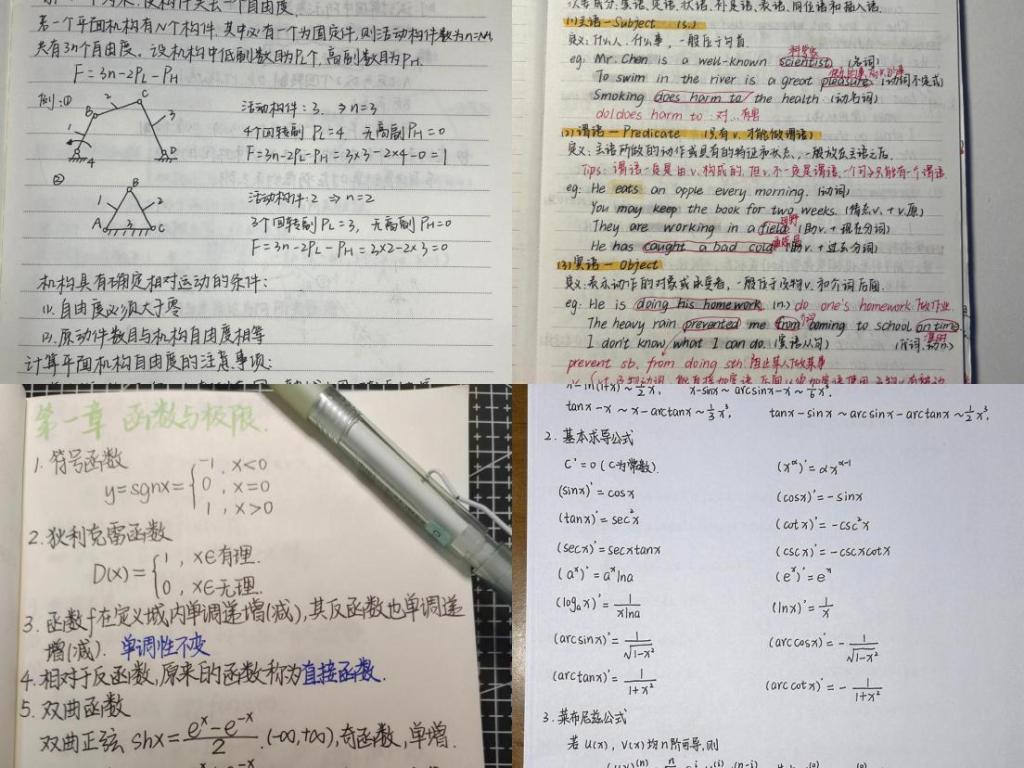 若一个平面机构有N个构件,其中必有一个为固定件,则活动构件数为n=N-1,
共有3n个自由度。设机构中低副数目为PL个,高副数目为PH.
F=3n-2PL-PH
例:①
B 2 C
1 3
4 D
活动构件:3. ⇒ n=3
4个回转副 PL=4 无高副PH=0
F=3n-2PL-PH=3×3-2×4-0=1
②
B
1 2
A 3 C
活动构件:2 ⇒ n=2
3个回转副PL=3, 无高副PH=0
F=3n-2PL-PH=2×2-2×3=0
机构具有确定相对运动的条件:
(1).自由度必须大于零
(2).原动件数目与机构自由度相等
计算平面机构自由度的注意事项:
定语、状语、补语、表语、同位语和插入语.
(1)主语—Subject (s.)
定义:什么人.什么事,一般位于句首.
科学家
eg: Mr. Chen is a well-known scientist (名词)
To swim in the river is a great pleasure. (动词不定式)
Smoking does harm to the health (动名词)
do/does harm to 对...有害
(2)谓语—Predicate (只有v.才能做谓语)
定义:主语所做的动作或具有的特征和状态,一般放在主语之后.
Tips: 谓语一定是由v.构成的,但v.不一定是谓语,一个句子只能有一个谓语
eg: He eats an apple every morning. (动词)
You may keep the book for two weeks. (情态v.+v.原)
田野
They are working in a field (助v.+现在分词)
He has caught a bad cold (助v.+过去分词)
(3)宾语—Object
定义:表示动作的对象或承受者,一般位于及物v.和介词后面.
eg: He is doing his homework (n.) do one's homework 做作业
The heavy rain prevented me from coming to school on time
I don't know what I can do. (宾语从句)
prevent sb. from doing sth. 阻止某人做某事
第一章 函数与极限.
1.符号函数
y=sgnx={ -1, x<0
0, x=0
1, x>0
2.狄利克雷函数
D(x)={ 1, x∈有理.
0, x∈无理.
3.函数f在定义域内单调递增(减),其反函数也单调递
增(减). 单调性不变
4.相对于反函数,原来的函数称为直接函数.
5.双曲函数
双曲正弦 shx=(e^x-e^-x)/2. (-∞,+∞),奇函数,单增.
x-sinx ~ arcsinx-x ~ 1/6 x³.
tanx-x ~ x-arctanx ~ 1/3 x³, tanx-sinx ~ arcsinx-arctanx ~ 1/2 x³.
2.基本求导公式
C'=0 (C为常数). (x^α)'=αx^(α-1)
(sinx)'=cosx (cosx)'=-sinx
(tanx)'=sec²x (cotx)'=-csc²x
(secx)'=secxtanx (cscx)'=-cscxcotx
(a^x)'=a^x lna (e^x)'=e^x
(log_a x)'=1/(xlna) (lnx)'=1/x
(arcsinx)'=1/√(1-x²) (arccosx)'=-1/√(1-x²)
(arctanx)'=1/(1+x²) (arccotx)'=-1/(1+x²)
3.莱布尼兹公式
若u(x), v(x)均n阶可导,则